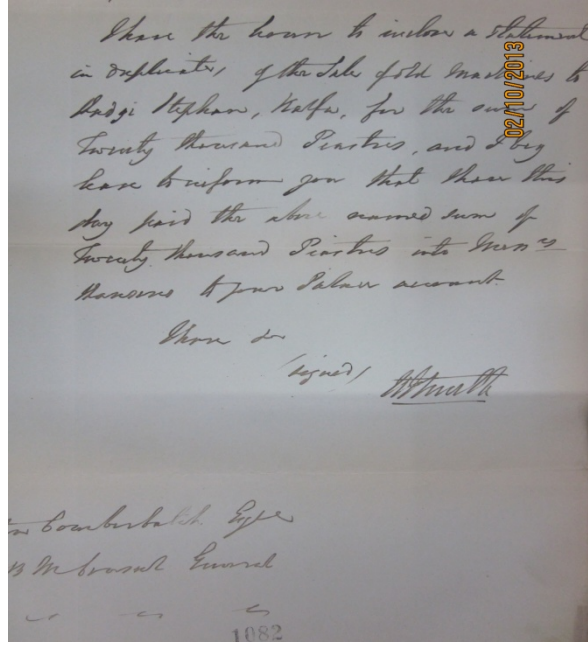 I have the honor to inclose a Statement
in duplicate, of the Sale of old Machines to
Hadgi Stephan, Kalfa, for the sum of
Twenty thousand Piastres, and I beg
leave to inform you that I have this
day paid the above named sum of
Twenty thousand Piastres into Messrs
Hansons to your Palmer account.
I have &c
(signed)
Cumberbatch Esqre
B M Consul General
" " "
1082
02/10/2013